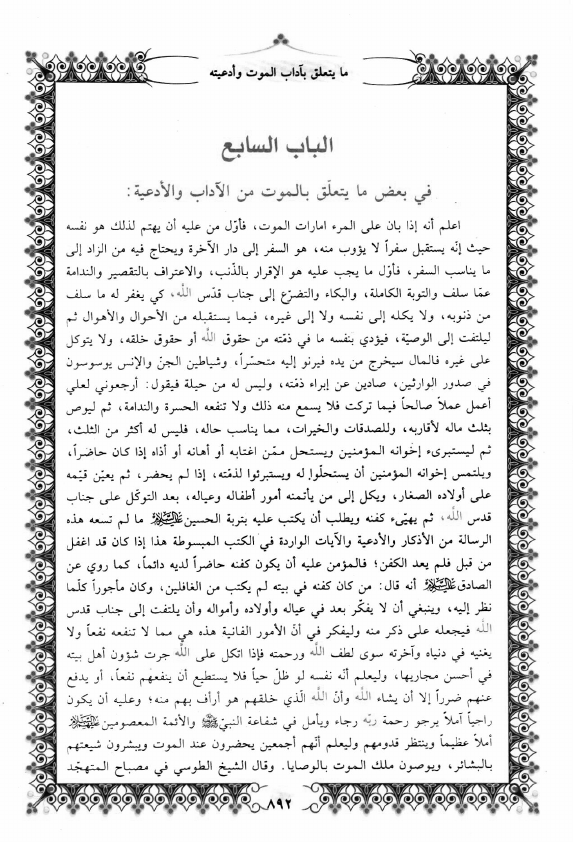 ما يتعلق بآداب الموت وأدعيته
الباب السابع
في بعض ما يتعلّق بالموت من الآداب والأدعية:
اعلم أنه إذا بان على المرء امارات الموت، فأوّل من عليه أن يهتم لذلك هو نفسه
حيث إنّه يستقبل سفراً لا يؤوب منه، هو السفر إلى دار الآخرة ويحتاج فيه من الزاد إلى
ما يناسب السفر، فأوّل ما يجب عليه هو الإقرار بالذّنب، والاعتراف بالتقصير والندامة
عمّا سلف والتوبة الكاملة، والبكاء والتضرّع إلى جناب قدّس الله، كي يغفر له ما سلف
من ذنوبه، ولا يكله إلى نفسه ولا إلى غيره، فيما يستقبله من الأحوال والأهوال ثم
ليلتفت إلى الوصيّة، فيؤدي بنفسه ما في ذمّته من حقوق الله أو حقوق خلقه، ولا يتوكل
على غيره فالمال سيخرج من يده فيرنو إليه متحسّراً، وشياطين الجنّ والإنس يوسوسون
في صدور الوارثين، صادين عن إبراء ذمّته، وليس له من حيلة فيقول: أرجعوني لعلي
أعمل عملاً صالحاً فيما تركت فلا يسمع منه ذلك ولا تنفعه الحسرة والندامة، ثم ليوص
بثلث ماله لأقاربه، وللصدقات والخيرات، مما يناسب حاله، فليس له أكثر من الثلث،
ثم ليستبرىء إخوانه المؤمنين ويستحل ممّن اغتابه أو أهانه أو أذاه إذا كان حاضراً،
ويلتمس إخوانه المؤمنين أن يستحلّوا له ويستبرئوا لذمّته، إذا لم يحضر، ثم يعيّن قيّمه
على أولاده الصغار، ويكل إلى من يأتمنه أمور أطفاله وعياله، بعد التوكّل على جناب
قدس الله، ثم يهيّىء كفنه ويطلب أن يكتب عليه بتربة الحسين عليه السلام ما لم تسعه هذه
الرسالة من الأذكار والأدعية والآيات الواردة في الكتب المبسوطة هذا إذا كان قد اغفل
من قبل فلم يعد الكفن؛ فالمؤمن عليه أن يكون كفنه حاضراً لديه دائماً، كما روي عن
الصادق عليه السلام أنه قال: من كان كفنه في بيته لم يكتب من الغافلين، وكان مأجوراً كلّما
نظر إليه، وينبغي أن لا يفكّر بعد في عياله وأولاده وأمواله وأن يلتفت إلى جناب قدس
الله فيجعله على ذكر منه وليفكر في أنّ الأمور الفانية هذه هي مما لا تنفعه نفعاً ولا
يغنيه في دنياه وآخرته سوى لطف الله ورحمته فإذا اتكل على الله جرت شؤون أهل بيته
في أحسن مجاريها، وليعلم أنّه نفسه لو ظلّ حياً فلا يستطيع أن ينفعهم نفعاً، أو يدفع
عنهم ضرراً إلا أن يشاء الله وأنّ الله الّذي خلقهم هو أرأف بهم منه؛ وعليه أن يكون
راجياً آملاً يرجو رحمة ربّه رجاء ويأمل في شفاعة النبيّ ﷺ والأئمة المعصومين عليهم السلام
أملاً عظيماً وينتظر قدومهم وليعلم أنّهم أجمعين يحضرون عند الموت ويبشرون شيعتهم
بالبشائر، ويوصون ملك الموت بالوصايا. وقال الشيخ الطوسي في مصباح المتهجّد
٨٩٢